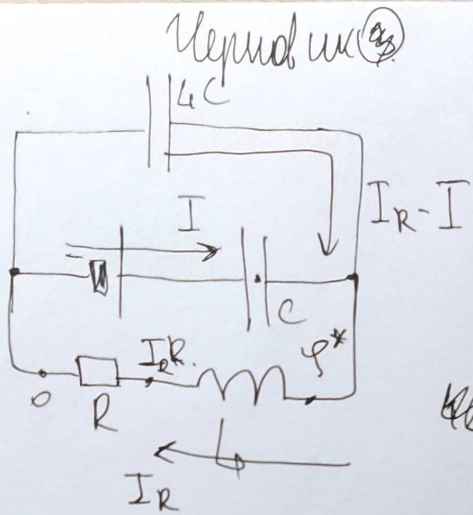 Черновик 3
4C
I
I_R - I
C
I_R R.
φ*
0
R
L
I_R